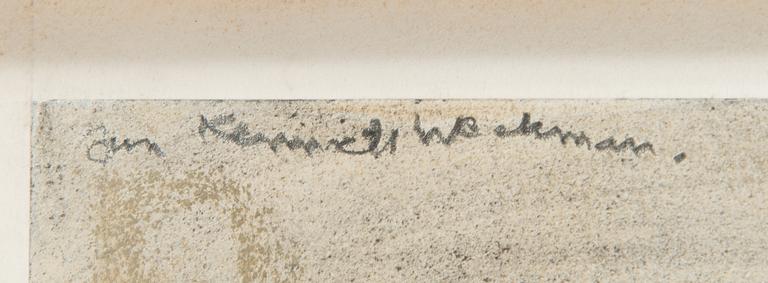 Jan Kenneth Weckman.